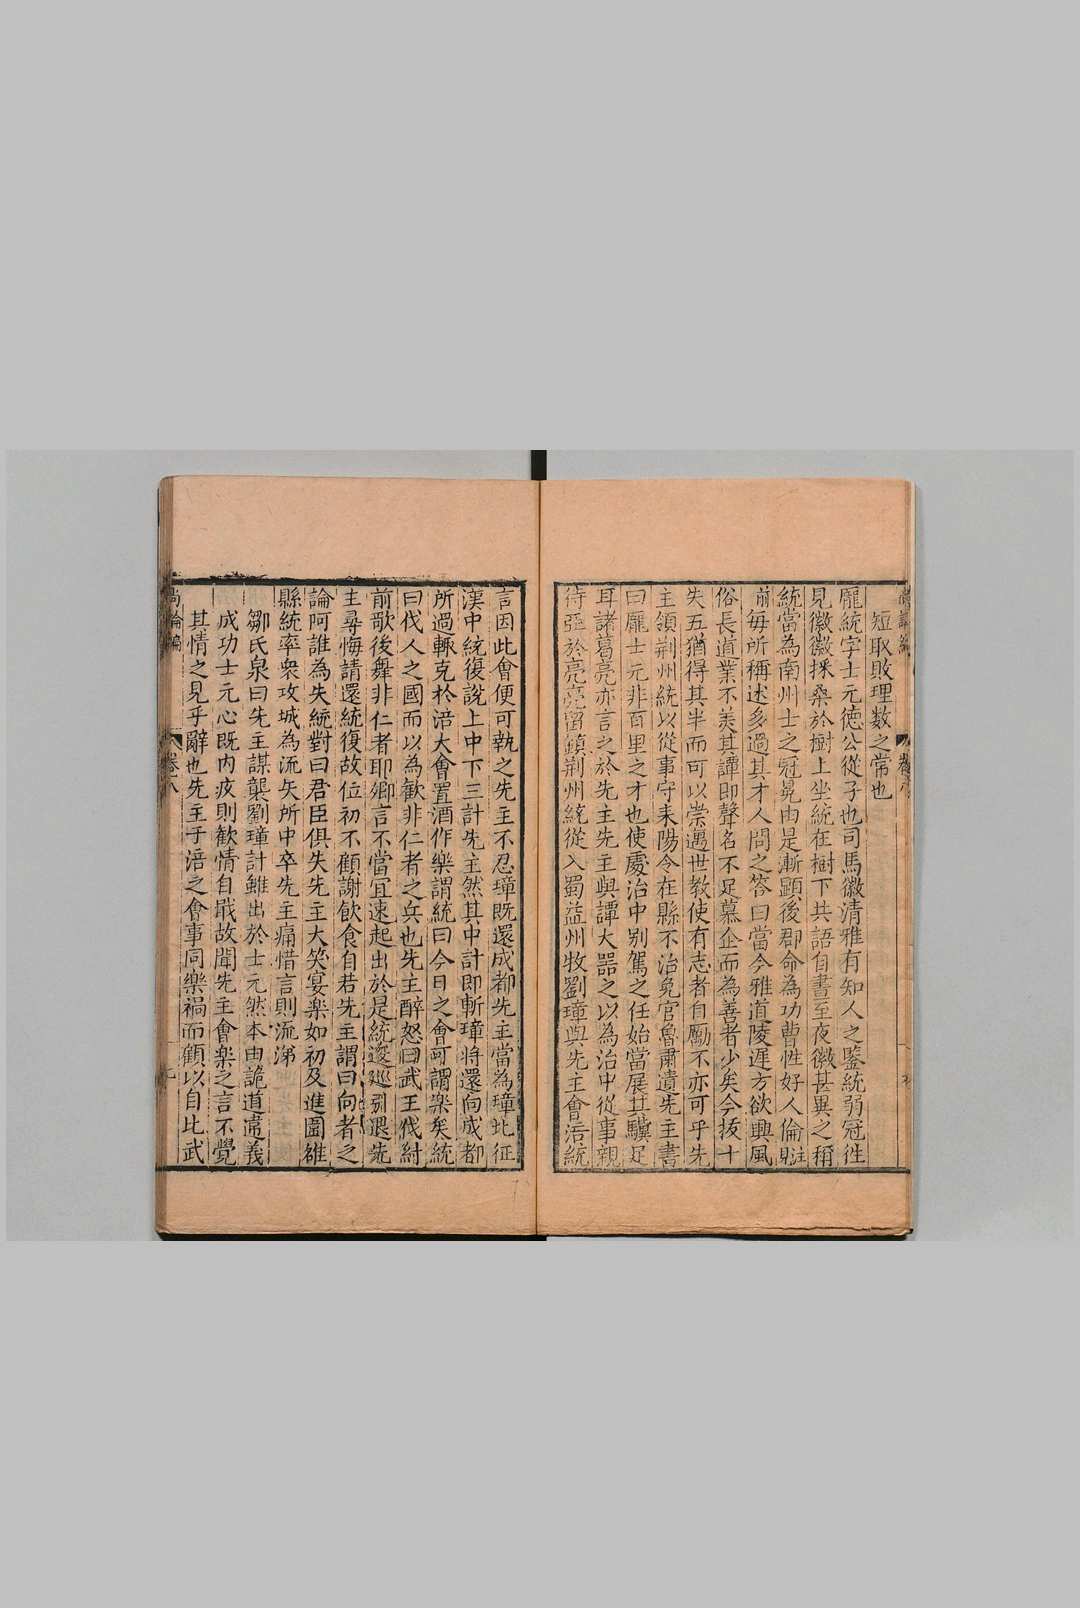 短取敗理數之常也
龐統字士元德公從子也司馬徽清雅有知人之鑒統弱冠徃
見徽徽採桑於樹上坐統在樹下共語自晝至夜徽甚異之稱
統當為南州士之冠冕由是漸顯後郡命為功曹性好人倫
每所稱述多過其才人問之答曰當今雅道陵遲方欲興風
俗長道業不美其譚即聲名不足慕企而為善者少矣今拔十
失五猶得其半而可以崇邁世教使有志者自勵不亦可乎先
主領荆州統以從事守耒陽令在縣不治免官魯肅遺先主書
曰龐士元非百里之才也使處治中别駕之任始當展其驥足
耳諸葛亮亦言之於先主先主與譚大器之以為治中從事親
待亞於亮亮留鎮荆州統從入蜀益州牧劉璋與先主會涪統
言因此會便可執之先主不忍璋既還成都先主當為璋北征
漢中統復說上中下三計先主然其中計即斬璋將還向成都
所過輒克於涪大會置酒作樂謂統曰今日之會可謂樂矣統
曰伐人之國而以為歡非仁者之兵也先主醉怒曰武王伐紂
前歌後舞非仁者耶卿言不當冝速起出於是統逡廵引退先
主尋悔請還統復故位初不顧謝飲食自若先主謂曰向者之
論阿誰為失統對曰君臣俱失先主大笑宴樂如初及進圍雒
縣統率衆攻城為流矢所中卒先主痛惜言則流涕
鄒氏泉曰先主謀襲劉璋計雖出於士元然本由詭道違義
成功士元心既内疚則歡情自戢故聞先主會樂之言不覺
其情之見乎辭也先主于涪之會事同樂禍而顧以自比武
尚論編
卷八